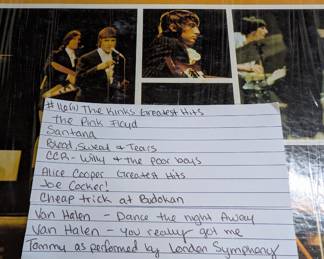 #116(11) The Kinks Greatest Hits
The Pink Floyd
Santana
Blood, Sweat & Tears
CCR - Willy & the Poor boys
Alice Cooper Greatest Hits
Joe Cocker!
Cheap trick at Budokan
Van Halen - Dance the night Away
Van Halen - You really got me
Tommy as performed by London Symphony